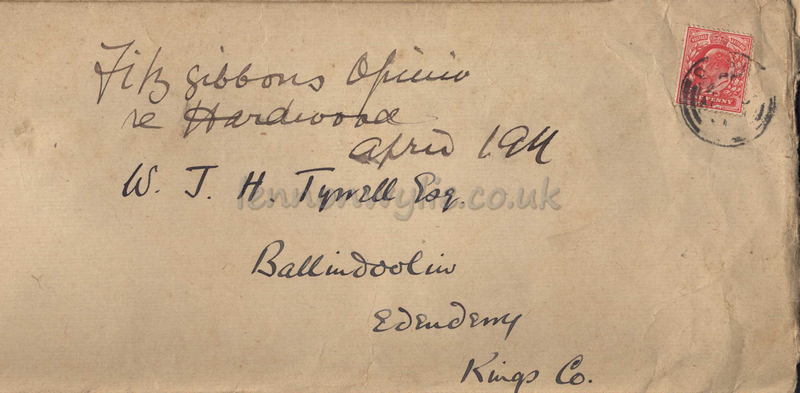 Fitzgibbons Opinion
re Hardwood
April 1911
W. J. H. Tyrrell Esq.
lennonwylie.co.uk
Ballindoolin
Edenderry
Kings Co.
PENNY